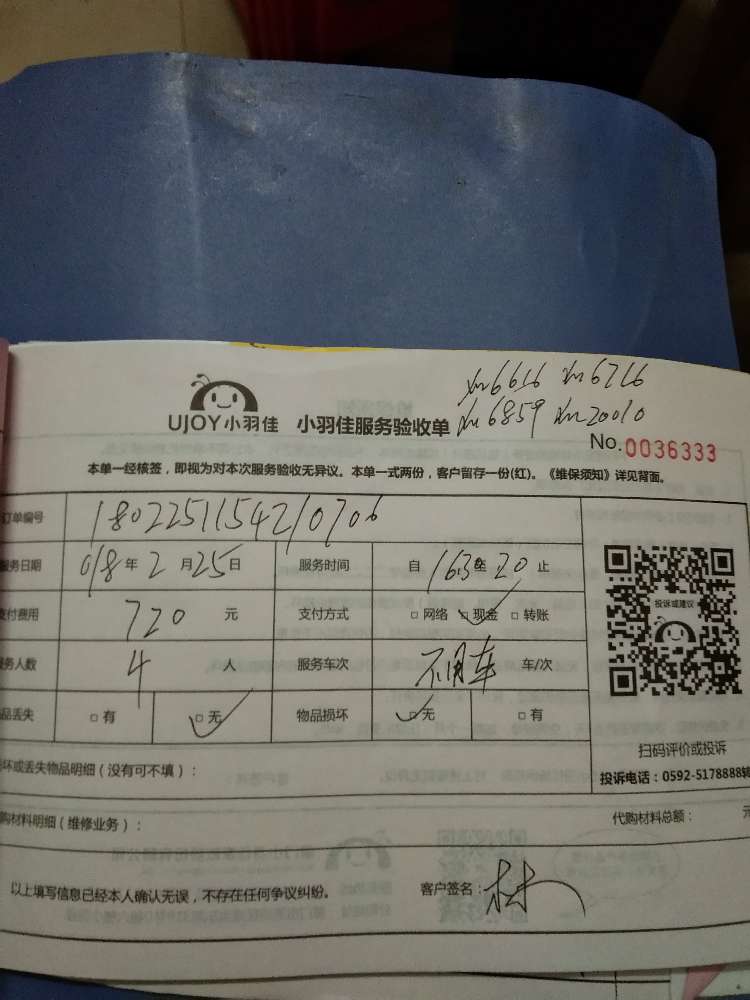 xm6616 xm6716
UJOY小羽佳 小羽佳服务验收单 xm6859 xm20010
No.0036333
本单一经核签，即视为对本次服务验收无异议。本单一式两份，客户留存一份(红)。《维保须知》详见背面。
订单编号 1802251154210706
服务日期 018年2月25日 服务时间 自1630至20止
支付费用 720 元 支付方式 □网络 □现金 □转账
服务人数 4 人 服务车次 不用车 车/次
品丢失 □有 □无 物品损坏 □无 □有
投诉或建议
扫码评价或投诉
坏或丢失物品明细（没有可不填）：
投诉电话：0592-5178888转
购材料明细（维修业务）： 代购材料总额： 元
以上填写信息已经本人确认无误，不存在任何争议纠纷。 客户签名：林